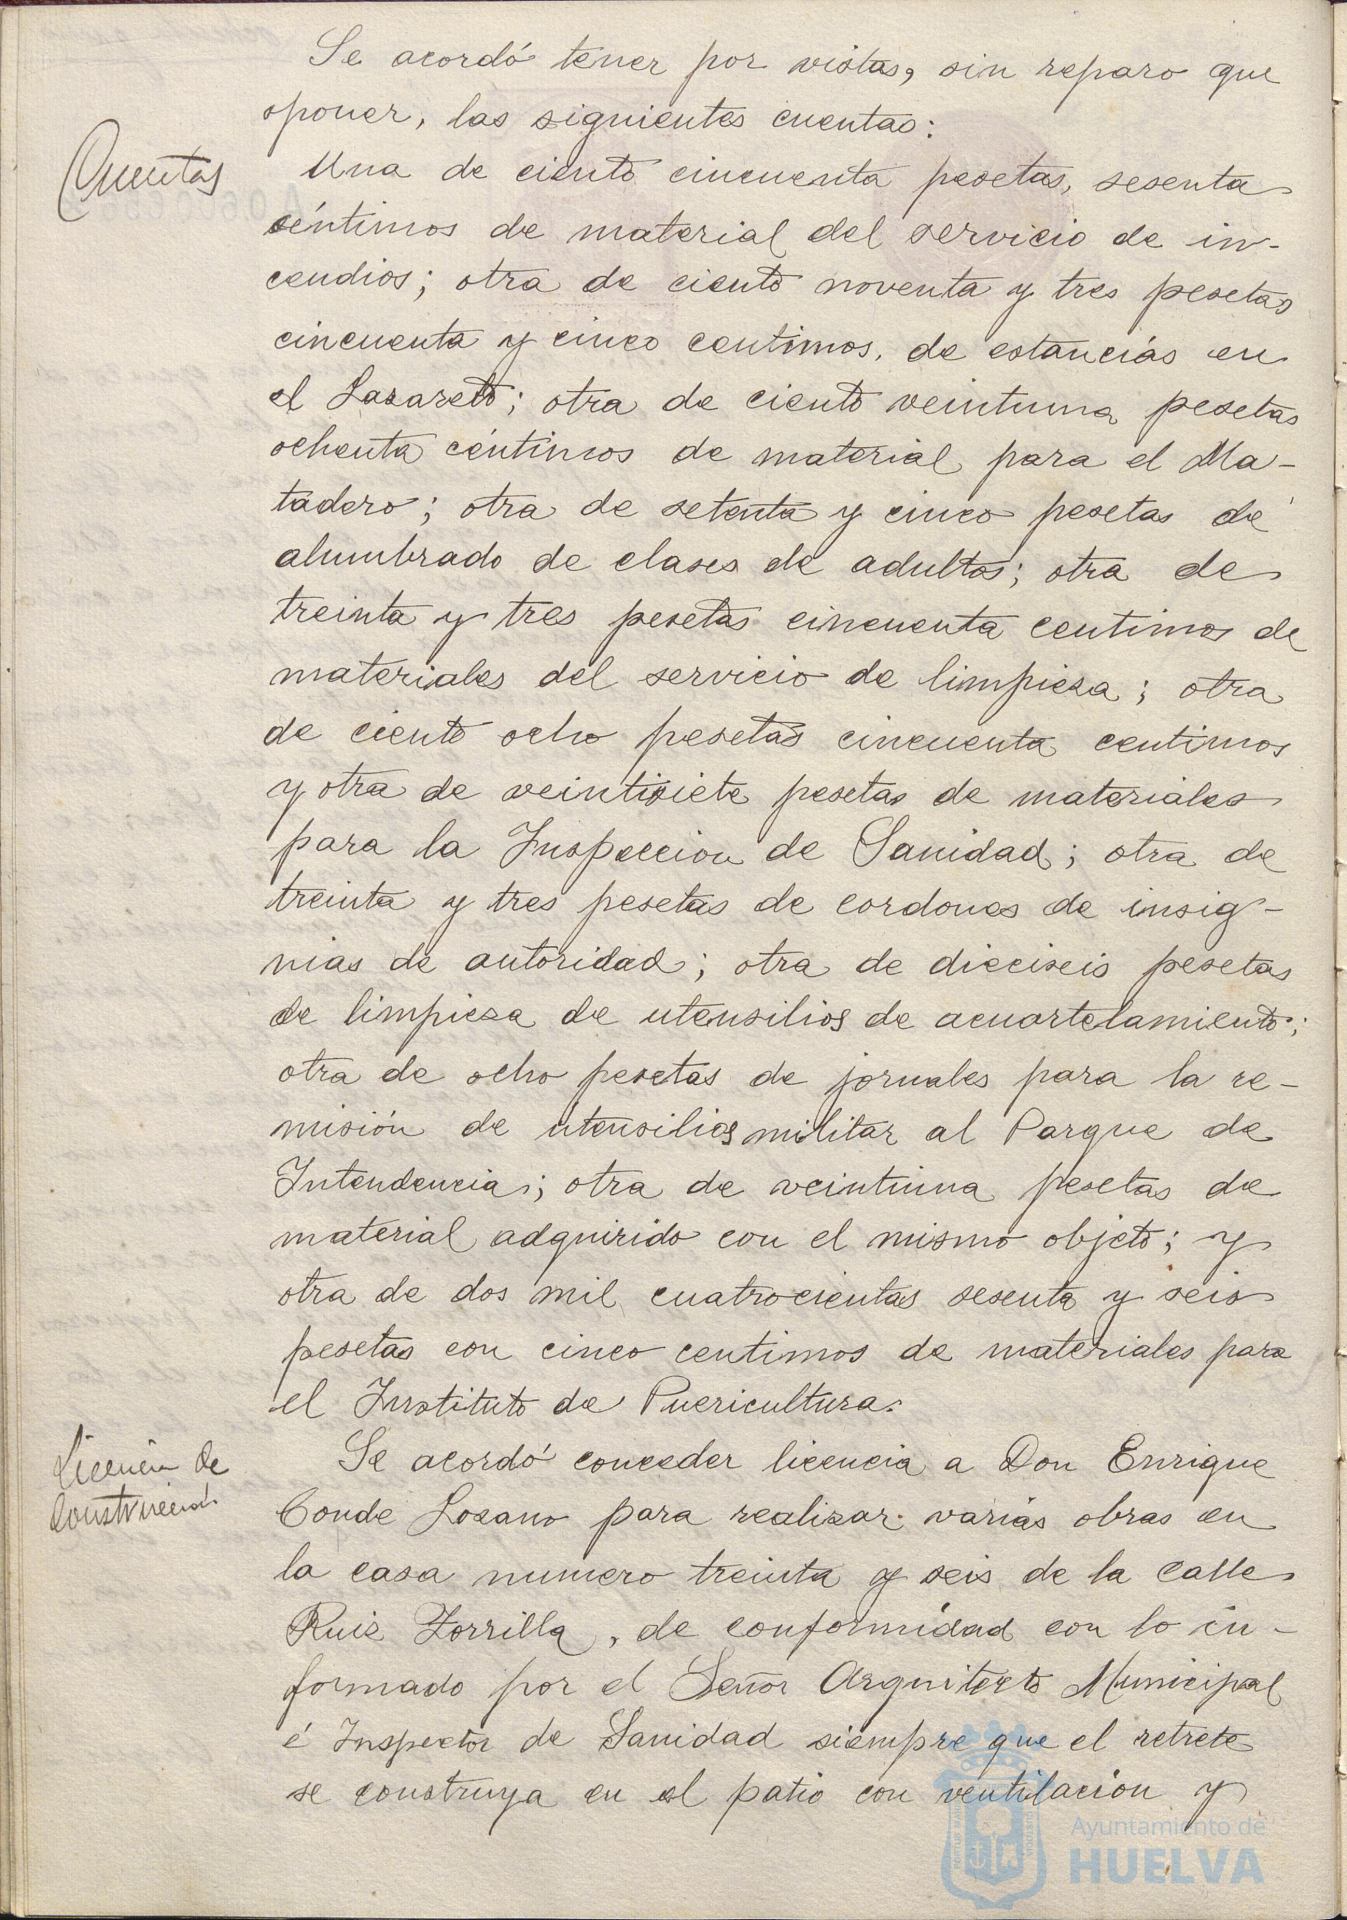 Se acordó tener por vistas, sin reparo que
oponer, las siguientes cuentas:
Cuentas
Una de ciento cincuenta pesetas, sesenta
céntimos de material del servicio de in-
cendios; otra de ciento noventa y tres pesetas
cincuenta y cinco centimos, de estancias en
el Lazareto; otra de ciento veintiuna pesetas
ochenta céntimos de material para el Ma-
tadero; otra de setenta y cinco pesetas de
alumbrado de clases de adultos; otra de
treinta y tres pesetas cincuenta centimos de
materiales del servicio de limpieza; otra
de ciento ocho pesetas cincuenta centimos
y otra de veintisiete pesetas de materiales
para la Inspeccion de Sanidad; otra de
treinta y tres pesetas de cordones de insig-
nias de autoridad; otra de dieciseis pesetas
de limpieza de utensilios de acuartelamiento;
otra de ocho pesetas de jornales para la re-
misión de utensilios militar al Parque de
Intendencia; otra de veintiuna pesetas de
material adquirido con el mismo objeto; y
otra de dos mil cuatrocientas sesenta y seis
pesetas con cinco centimos de materiales para
el Instituto de Puericultura.
Licencia de
construcción
Se acordó conceder licencia a Don Enrique
Conde Lozano para realizar varias obras en
la casa numero treinta y seis de la calle
Ruiz Zorrilla, de conformidad con lo in-
formado por el Señor Arquitecto Municipal
é Inspector de Sanidad siempre que el retrete
se construya en el patio con ventilación y
Ayuntamiento de
HUELVA